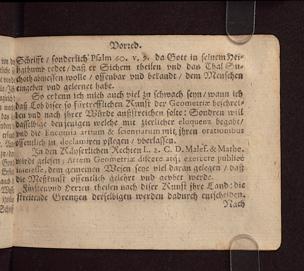 Vorred.
Schrifft / sonderlich Psalm 60. v. 8. da Gott in seinem Hei-
ligthumb redet / daß er Sichem theilen und das Thal Su-
choth abmessen wolle / offenbar und bekandt / dem Menschen
eingeben und gelernet habe.
So erkenn ich mich auch viel zu schwach seyn / wann ich
daß Lob diser so fürtrefflichen Kunst der Geometriæ beschrei-
ben und nach ihrer Würde außstreichen solte: Sondern will
dasselbige denjenigen welche mit zierlicher eloquens begabt /
und die Encomia artium & scientiarum mit ihren orationibus
offentlich zu declamiren pflegen / überlassen.
In den Käyserlichen Rechten L. 2. C. D. Malef. & Mathe.
wird gelesen; Artem Geometriæ discere atq; exercere publicè
intersit, dem gemeinen Wesen seye viel daran gelegen / daß
die Meßkunst offentlich gelehrt und geübet werde.
Fürsten und Herren theilen nach diser Kunst ihre Land: die
streitende Grentzen derselbigen werden dadurch entscheiden.
Nach